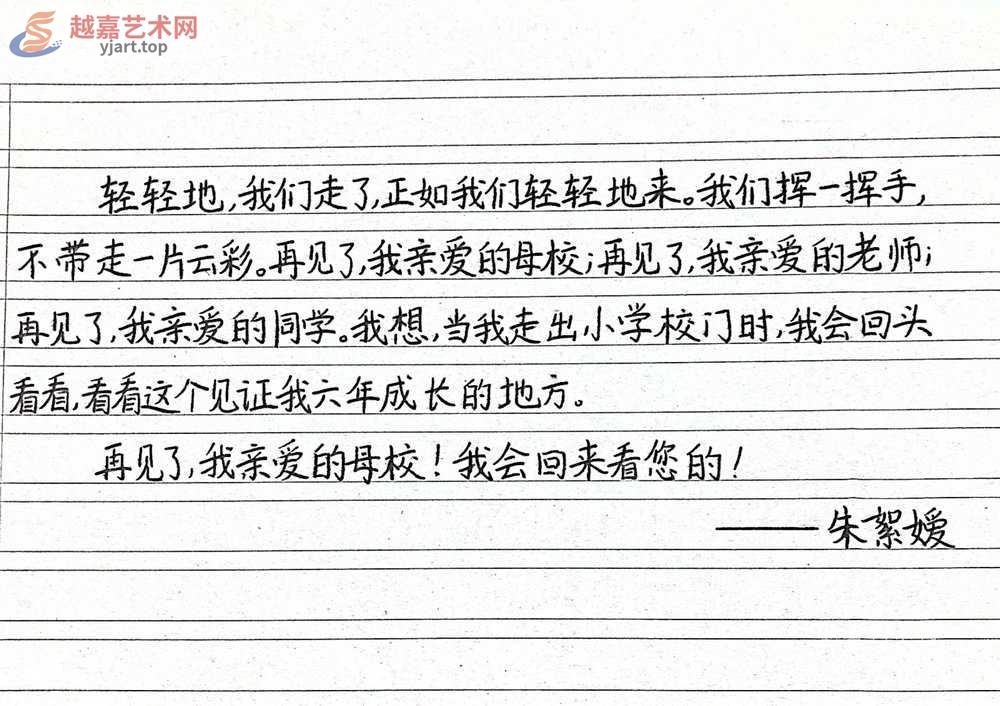 越嘉艺术网
yjart.top
轻轻地,我们走了,正如我们轻轻地来。我们挥一挥手,
不带走一片云彩。再见了,我亲爱的母校;再见了,我亲爱的老师;
再见了,我亲爱的同学。我想,当我走出小学校门时,我会回头
看看,看看这个见证我六年成长的地方。
再见了,我亲爱的母校!我会回来看您的!
——朱絮嫒